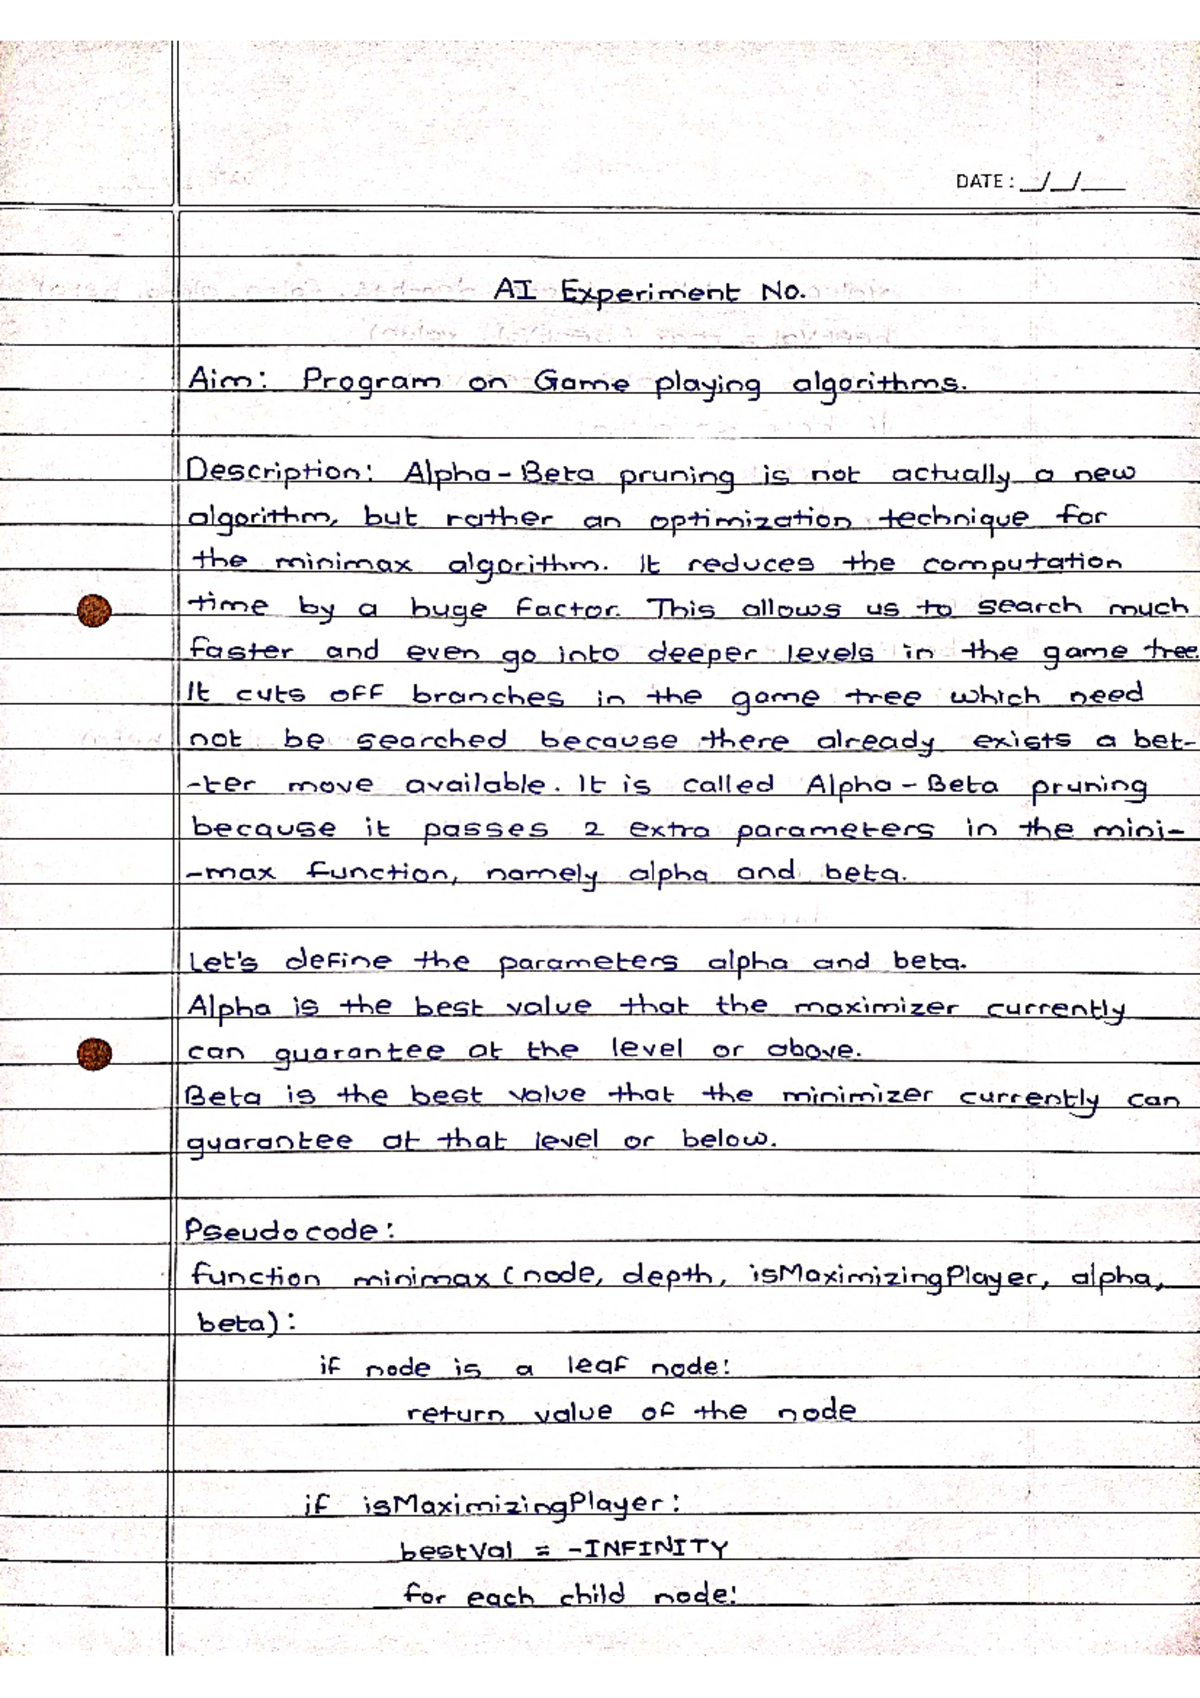 DATE : __/__/____
AI Experiment No.
Aim: Program on Game playing algorithms.
Description: Alpha-Beta pruning is not actually a new
algorithm, but rather an optimization technique for
the minimax algorithm. It reduces the computation
time by a huge factor. This allows us to search much
faster and even go into deeper levels in the game tree.
It cuts off branches in the game tree which need
not be searched because there already exists a bet-
-ter move available. It is called Alpha-Beta pruning
because it passes 2 extra parameters in the mini-
-max function, namely alpha and beta.
Let's define the parameters alpha and beta.
Alpha is the best value that the maximizer currently
can guarantee at the level or above.
Beta is the best value that the minimizer currently can
guarantee at that level or below.
Pseudocode:
function minimax (node, depth, isMaximizingPlayer, alpha,
beta):
if node is a leaf node:
return value of the node
if isMaximizingPlayer:
bestVal = -INFINITY
for each child node: